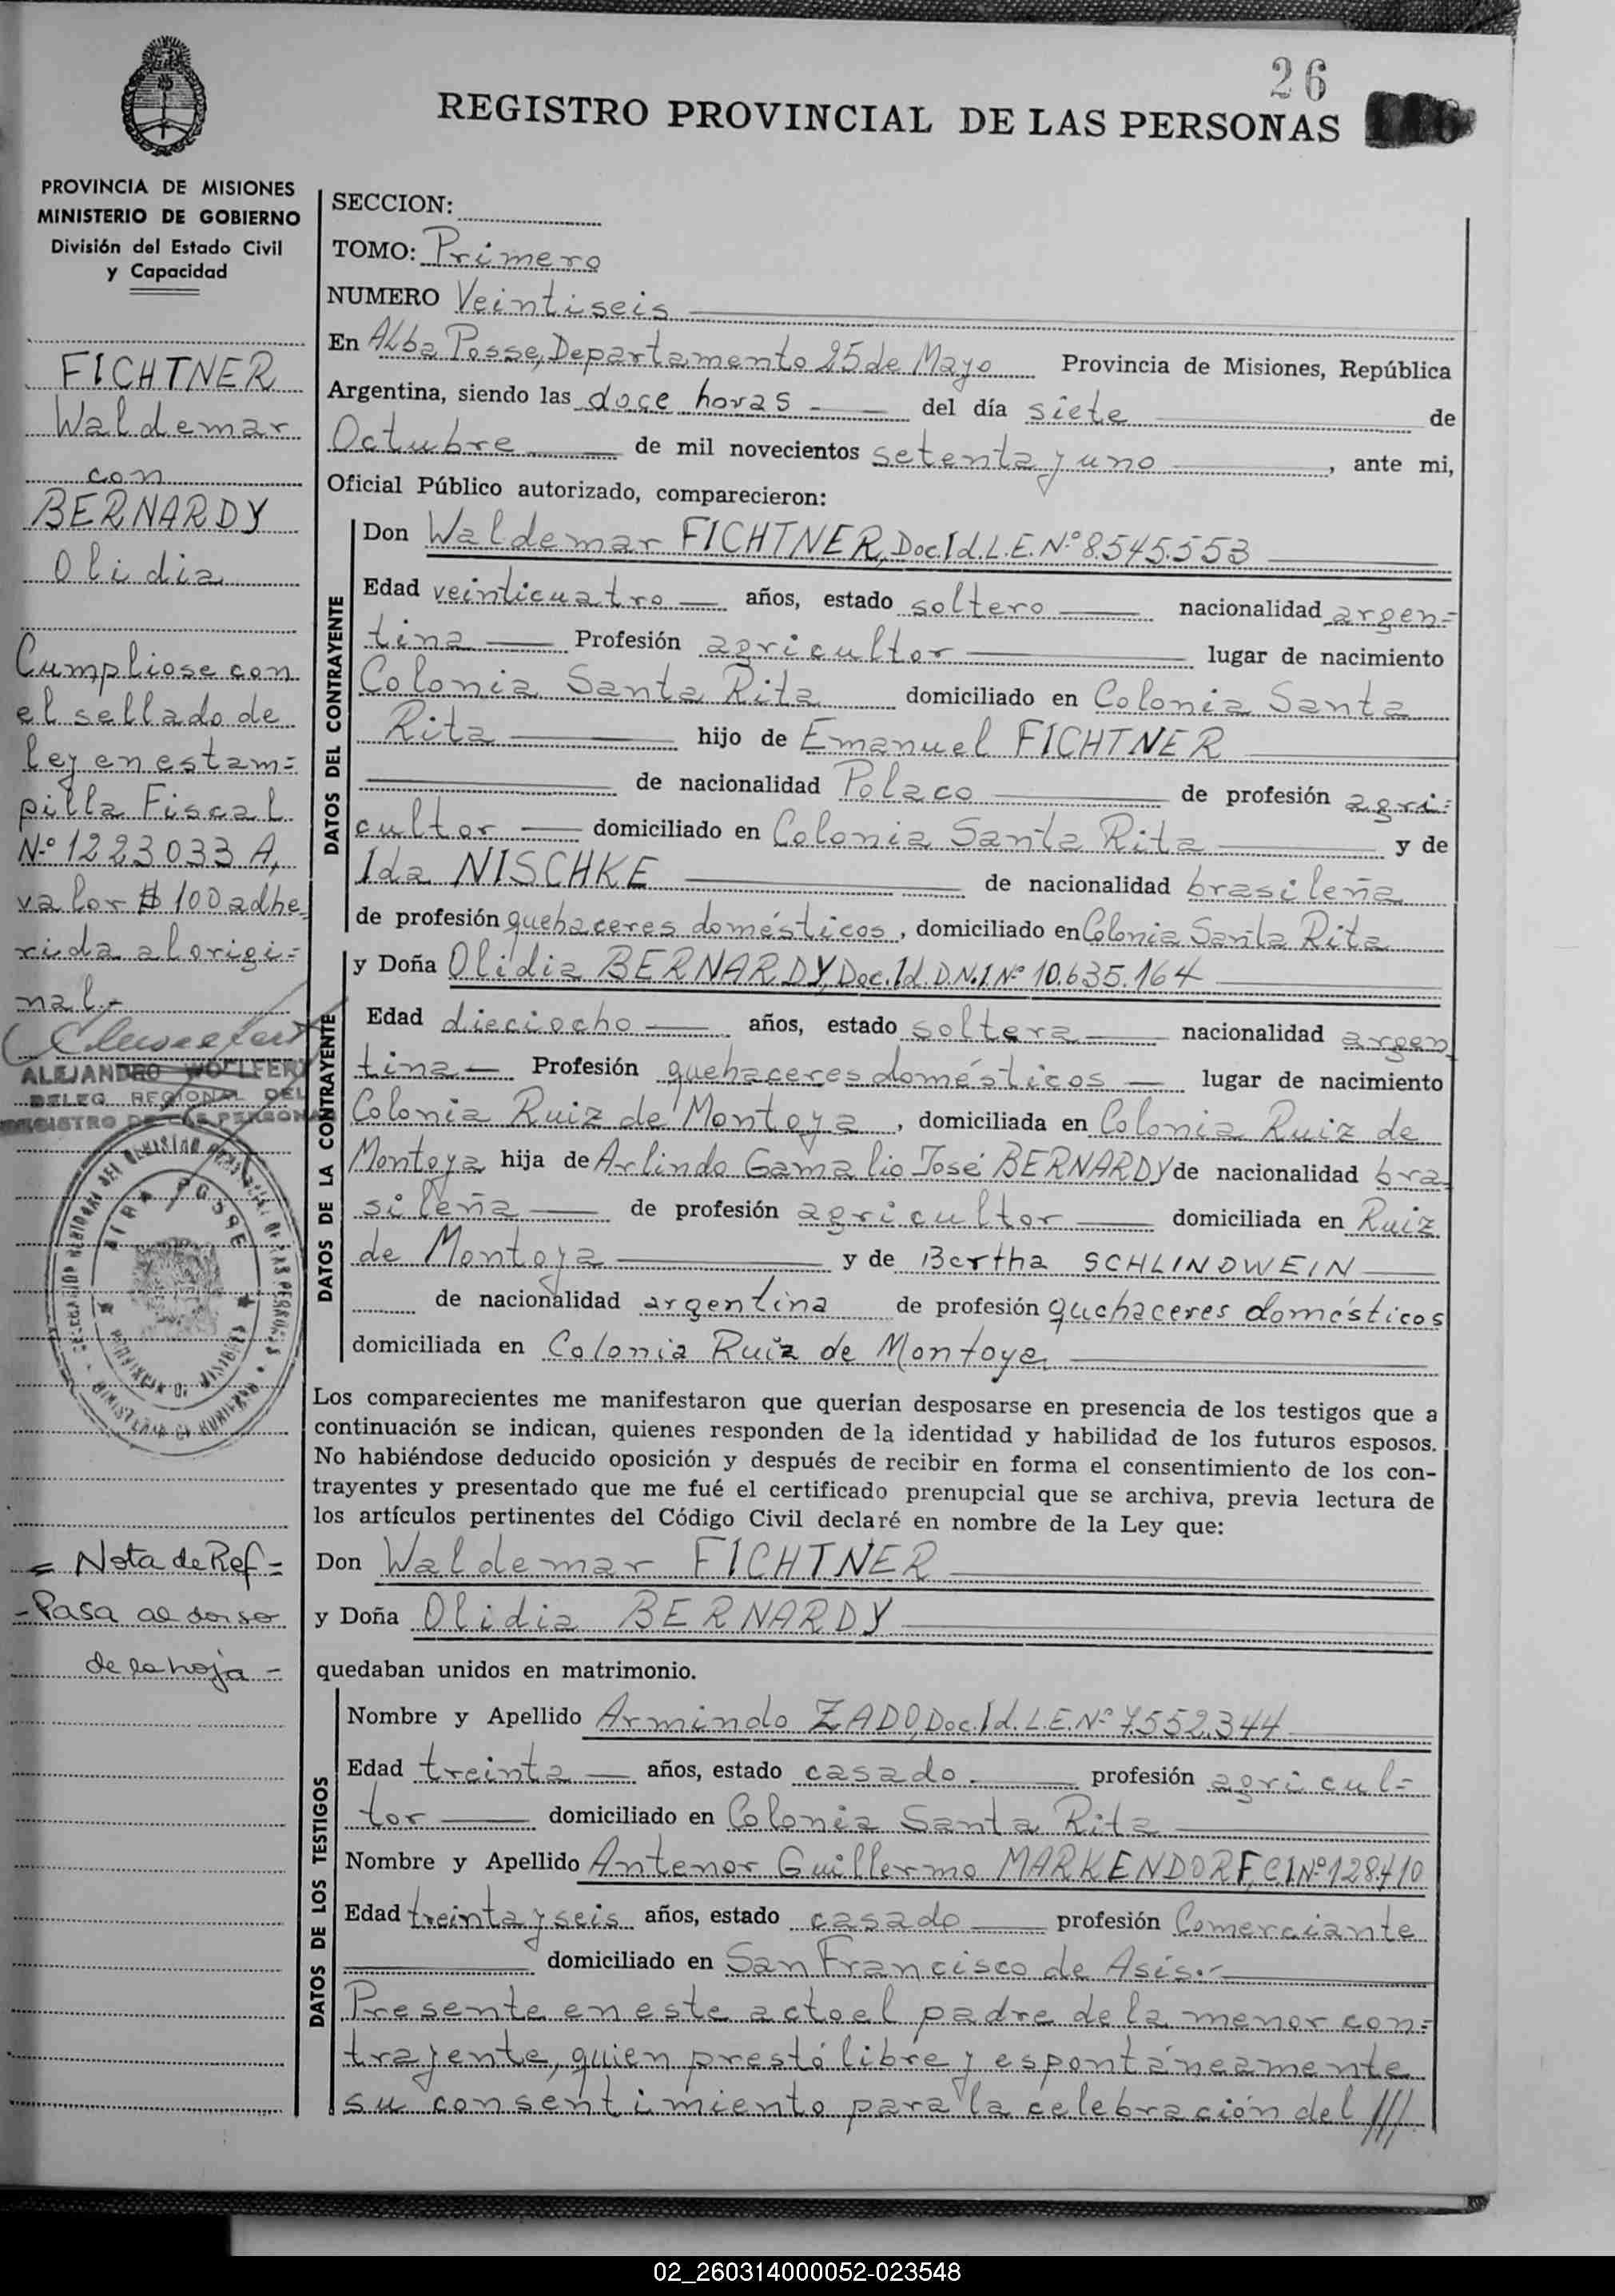 26
REGISTRO PROVINCIAL DE LAS PERSONAS
PROVINCIA DE MISIONES
MINISTERIO DE GOBIERNO
División del Estado Civil
y Capacidad
FICHTNER
Waldemar
con
BERNARDY
Olidia
Cumpliose con
el sellado de
ley en estam=
pilla Fiscal
N.º 1223033 A,
valor $ 100 adhe
rida al origi=
nal.-
ALEJANDRO WOLFERT
DELEG. REGIONAL DEL
REGISTRO DE LAS PERSONAS
= Nota de Ref =
- Pasa al dorso
de la hoja -
SECCION:
TOMO: Primero
NUMERO Veintiseis
En Alba Posse, Departamento 25 de Mayo Provincia de Misiones, República
Argentina, siendo las doce horas del día siete de
Octubre de mil novecientos setenta y uno, ante mi,
Oficial Público autorizado, comparecieron:
DATOS DEL CONTRAYENTE
Don Waldemar FICHTNER, Doc. Id. L.E. N.º 8.545.553
Edad veinticuatro años, estado soltero nacionalidad argen=
tina Profesión agricultor lugar de nacimiento
Colonia Santa Rita domiciliado en Colonia Santa
Rita hijo de Emanuel FICHTNER
de nacionalidad Polaco de profesión agri=
cultor domiciliado en Colonia Santa Rita y de
Ida NISCHKE de nacionalidad brasileña
de profesión quehaceres domésticos, domiciliado en Colonia Santa Rita
DATOS DE LA CONTRAYENTE
y Doña Olidia BERNARDY, Doc. Id. D.N.I. Nº 10.635.164
Edad dieciocho años, estado soltera nacionalidad argen
tina Profesión quehaceres domésticos lugar de nacimiento
Colonia Ruiz de Montoya, domiciliada en Colonia Ruiz de
Montoya hija de Arlindo Gamalio José BERNARDY de nacionalidad bra
sileña de profesión agricultor domiciliada en Ruiz
de Montoya y de Bertha SCHLINDWEIN
de nacionalidad argentina de profesión quehaceres domésticos
domiciliada en Colonia Ruiz de Montoya
Los comparecientes me manifestaron que querían desposarse en presencia de los testigos que a
continuación se indican, quienes responden de la identidad y habilidad de los futuros esposos.
No habiéndose deducido oposición y después de recibir en forma el consentimiento de los con-
trayentes y presentado que me fué el certificado prenupcial que se archiva, previa lectura de
los artículos pertinentes del Código Civil declaré en nombre de la Ley que:
Don Waldemar FICHTNER
y Doña Olidia BERNARDY
quedaban unidos en matrimonio.
DATOS DE LOS TESTIGOS
Nombre y Apellido Armindo ZADO, Doc. Id. L.E. N.º 7.552.344
Edad treinta años, estado casado profesión agricul=
tor domiciliado en Colonia Santa Rita
Nombre y Apellido Antenor Guillermo MARKENDORF, C.I. Nº 128.410
Edad treinta y seis años, estado casado profesión Comerciante
domiciliado en San Francisco de Asís.-
Presente en este acto el padre de la menor con=
trayente, quien prestó libre y espontáneamente
su consentimiento para la celebración del ///
02_260314000052-023548